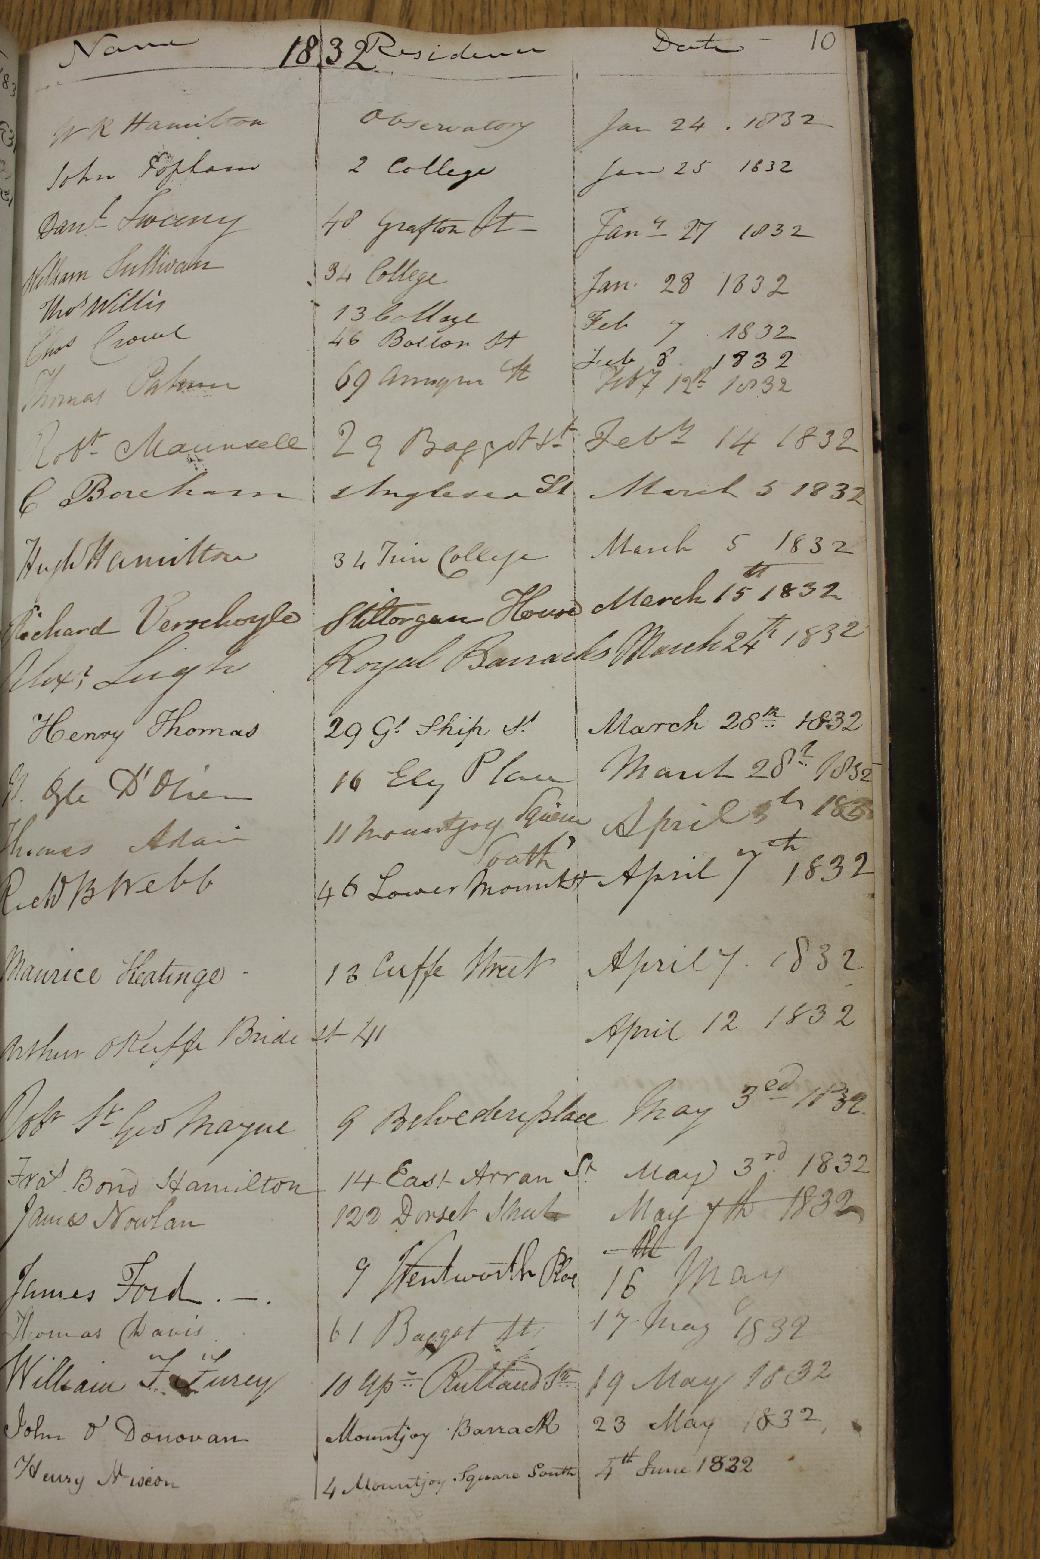 Name 1832 Residence Date 10
W R Hamilton Observatory Jan 24 . 1832
John Popham 2 College Jan 25 1832
Danl Sweeny 48 Grafton St Jany 27 1832
William Sullivan 34 College Jan. 28 1832
Thos Willis 13 College Feb 7 1832
Chas 46 Bolton St Feb 8 1832
Thomas 69 St 12th 1832
Robt Maunsell 29 Baggot St Feby 14 1832
C Boreham Anglesea St March 5 1832
Hugh Hamilton 34 Trin College March 5 1832
Richard Verschoyle Stillorgan House March 15th 1832
Alexr Leigh Royal Barracks March 24th 1832
Henry Thomas 29 Gt Ship St March 28th 1832
Ogle D'Olier 16 Ely Place March 28th 1832
Thomas Adair 11 Mountjoy Square South April 183
Richd B Webb 46 Lower Mount St April 7th 1832
Maurice Keatinge 13 Cuffe Street April 7 1832
Arthur O'Keiffe Bride St 41 April 12 1832
Robt St Geo Mayne 9 Belvedere place May 3rd 1832
Fras Bond Hamilton 14 East Arran St May 3rd 1832
James Nowlan 122 Dorset Street May 7th 1832
James Ford . — . 9 Wentworth Place 16 May
Thomas Davis 61 Baggot St 17 May 1832
William F. Furey 10 Upr Rutland St 19 May 1832
John O'Donovan Mountjoy Barrack 23 May 1832,
Henry Nixon 4 Mountjoy Square South 4th June 1832